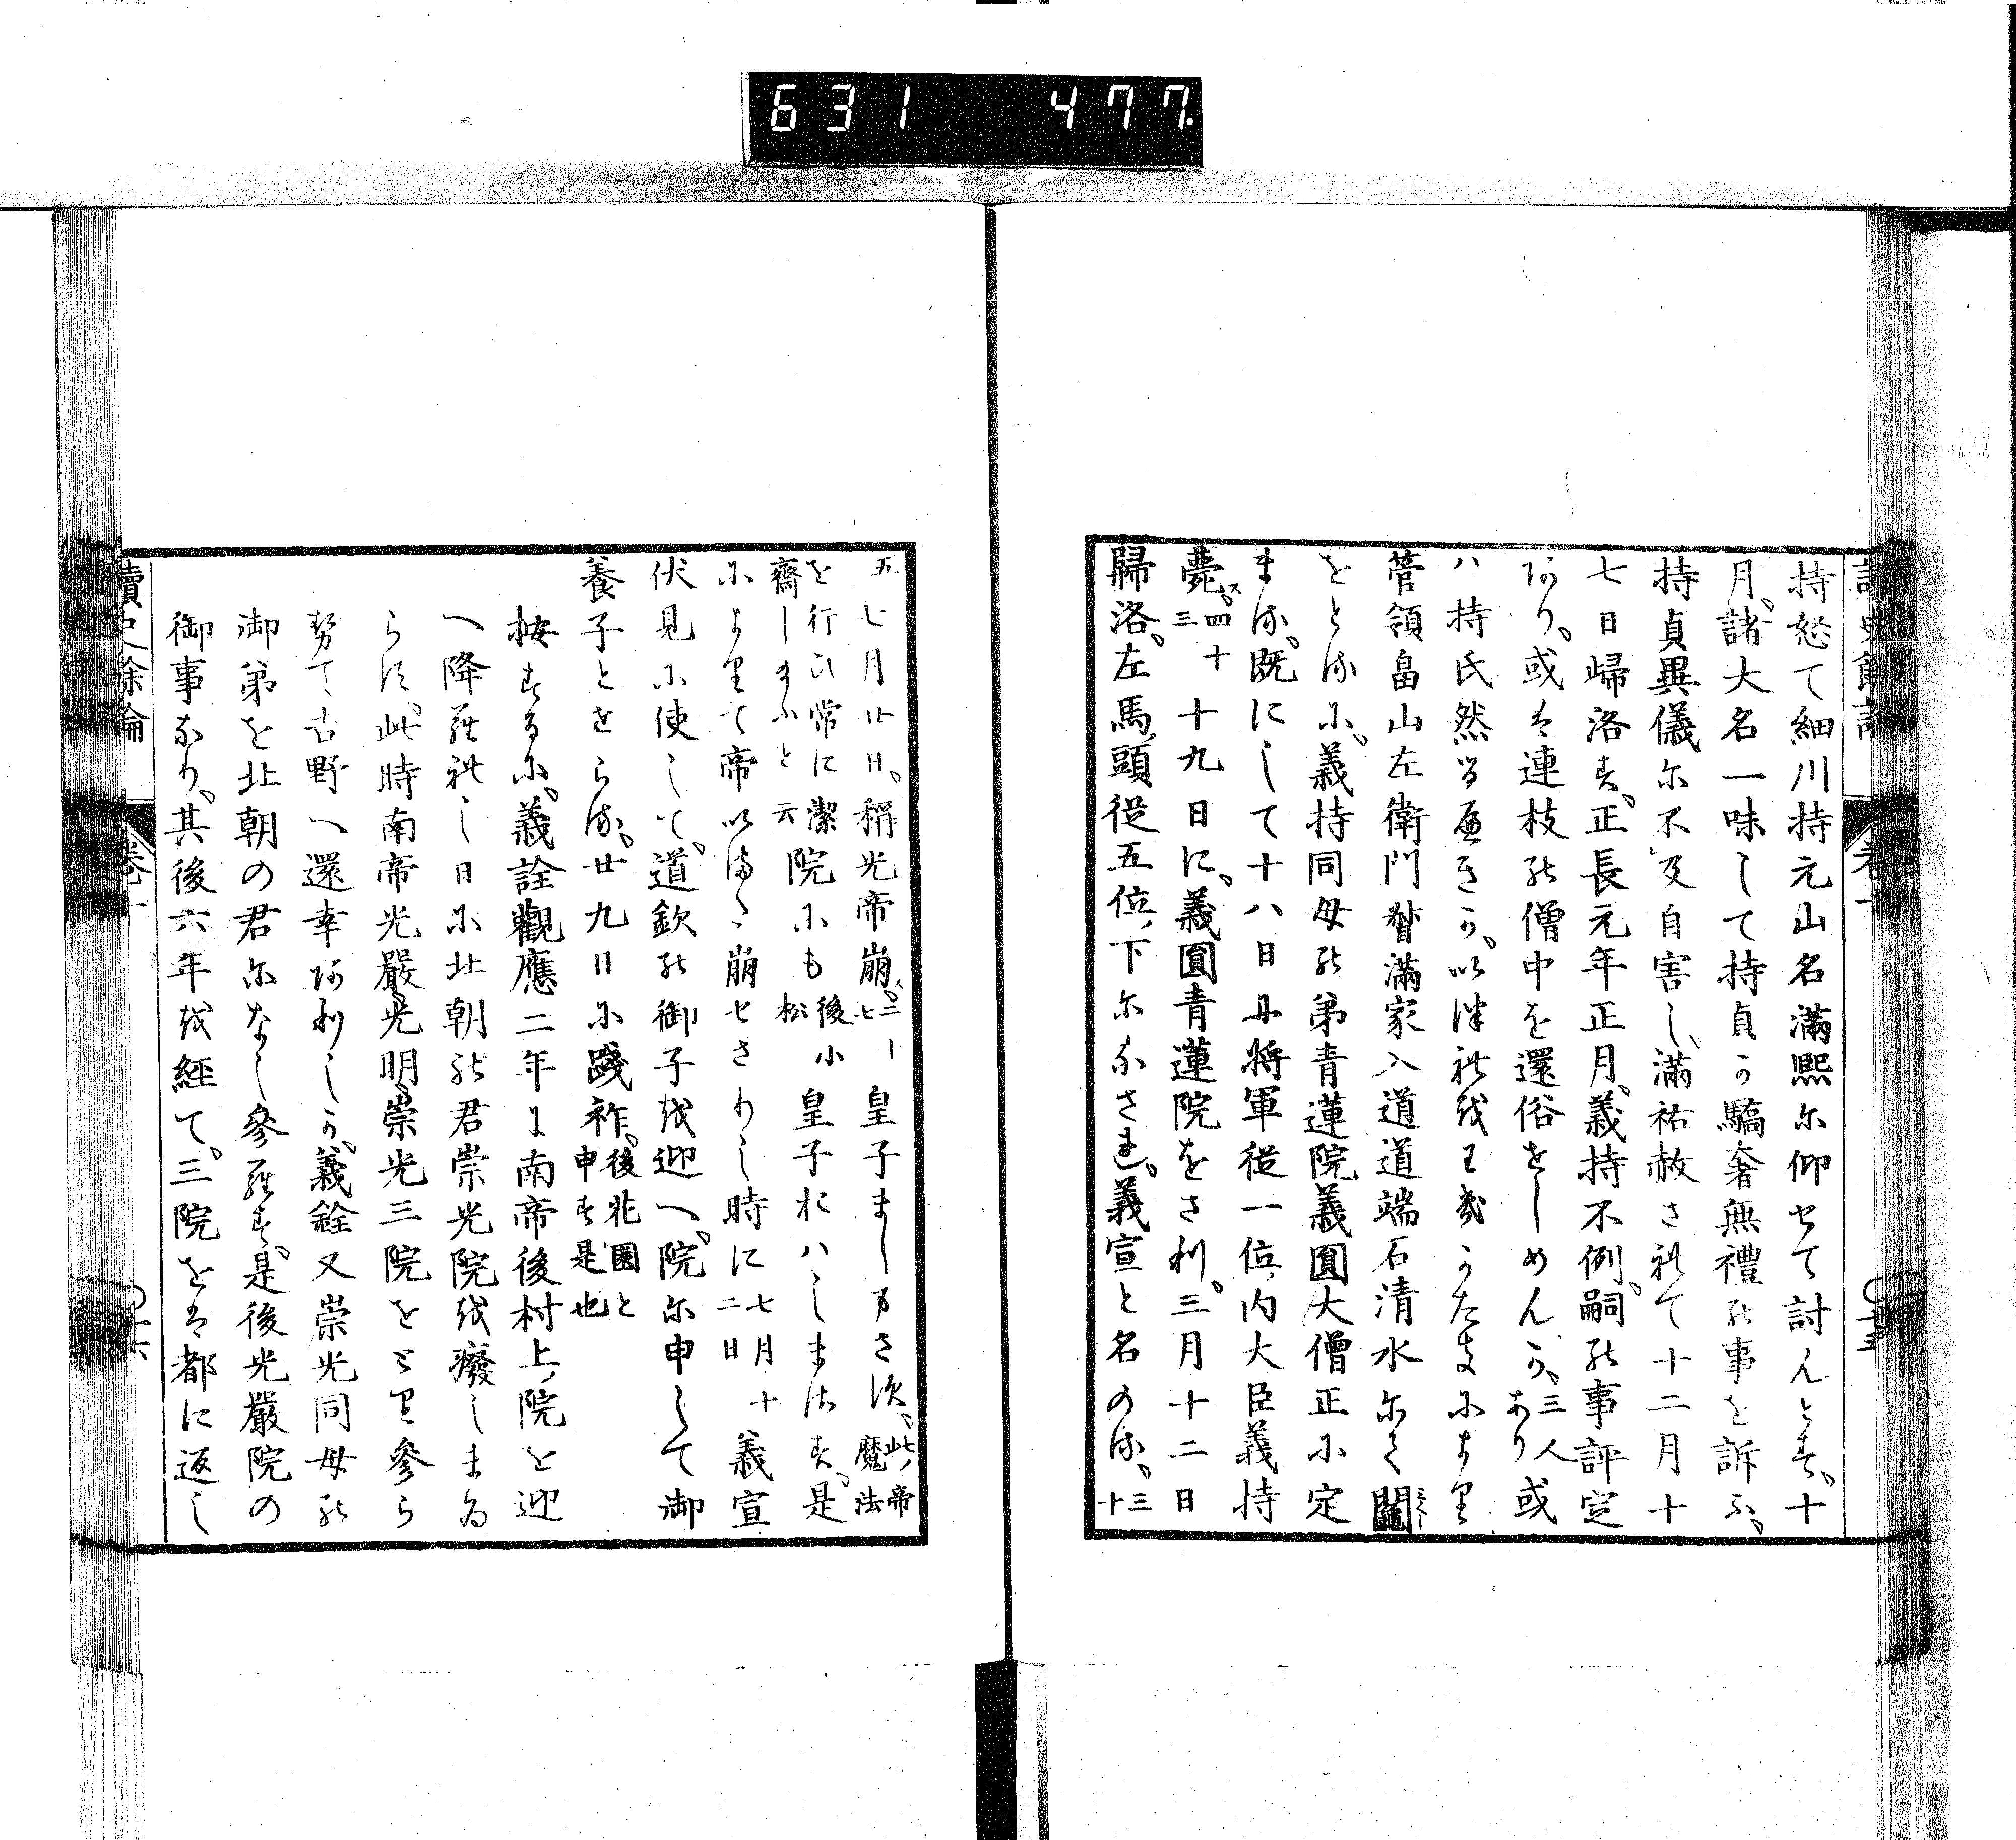 631 477
持怒て細川持元山名滿熈に仰せて討んとす、十
月、諸大名一味して持貞か驕奢無禮の事を訴ふ、
持貞異儀に不及自害し、滿祐赦されて十二月十
七日歸洛す、正長元年正月、義持不例、嗣の事評定
あり、或は連枝の僧中を還俗せしめんか、三人あり或
ハ持氏然るへきか、以
管領畠山左衛門督滿家入道道端石清水にて䦰
をとるに、義持同母の弟青蓮院義圓大僧正に定
まる、既にして十八日に將軍從一位、内大臣義持
薨ス、四十三十九日に、義圓青蓮院をさり、三月十二日
歸洛、左馬頭從五位、下になされ、義宣と名のる、三十
五七月廿日、稱光帝崩、二十七皇子ましまさす、此帝魔法
を行ひ常に潔齋し給ふと云院にも後小松皇子おハしまさす、是
によりて帝いまた崩せさりし時に七月十二日義宣
伏見に使して、道欽の御子を迎へ、院に申して御
養子とせらる、廿九日に踐祚、後花園と申す是也
按するに、義詮觀應二年に南帝後村上、院を迎
へ降參れし日に北朝の君崇光院を癈しまゐ
らす、此時南帝光嚴光明崇光三院をとり參ら
せて吉野へ還幸ありしか、義銓又崇光同母の
御弟を北朝の君になし參らす、是後光嚴院の
御事なり、其後六年を経て、三院をは都に返し
讀史餘論
卷一